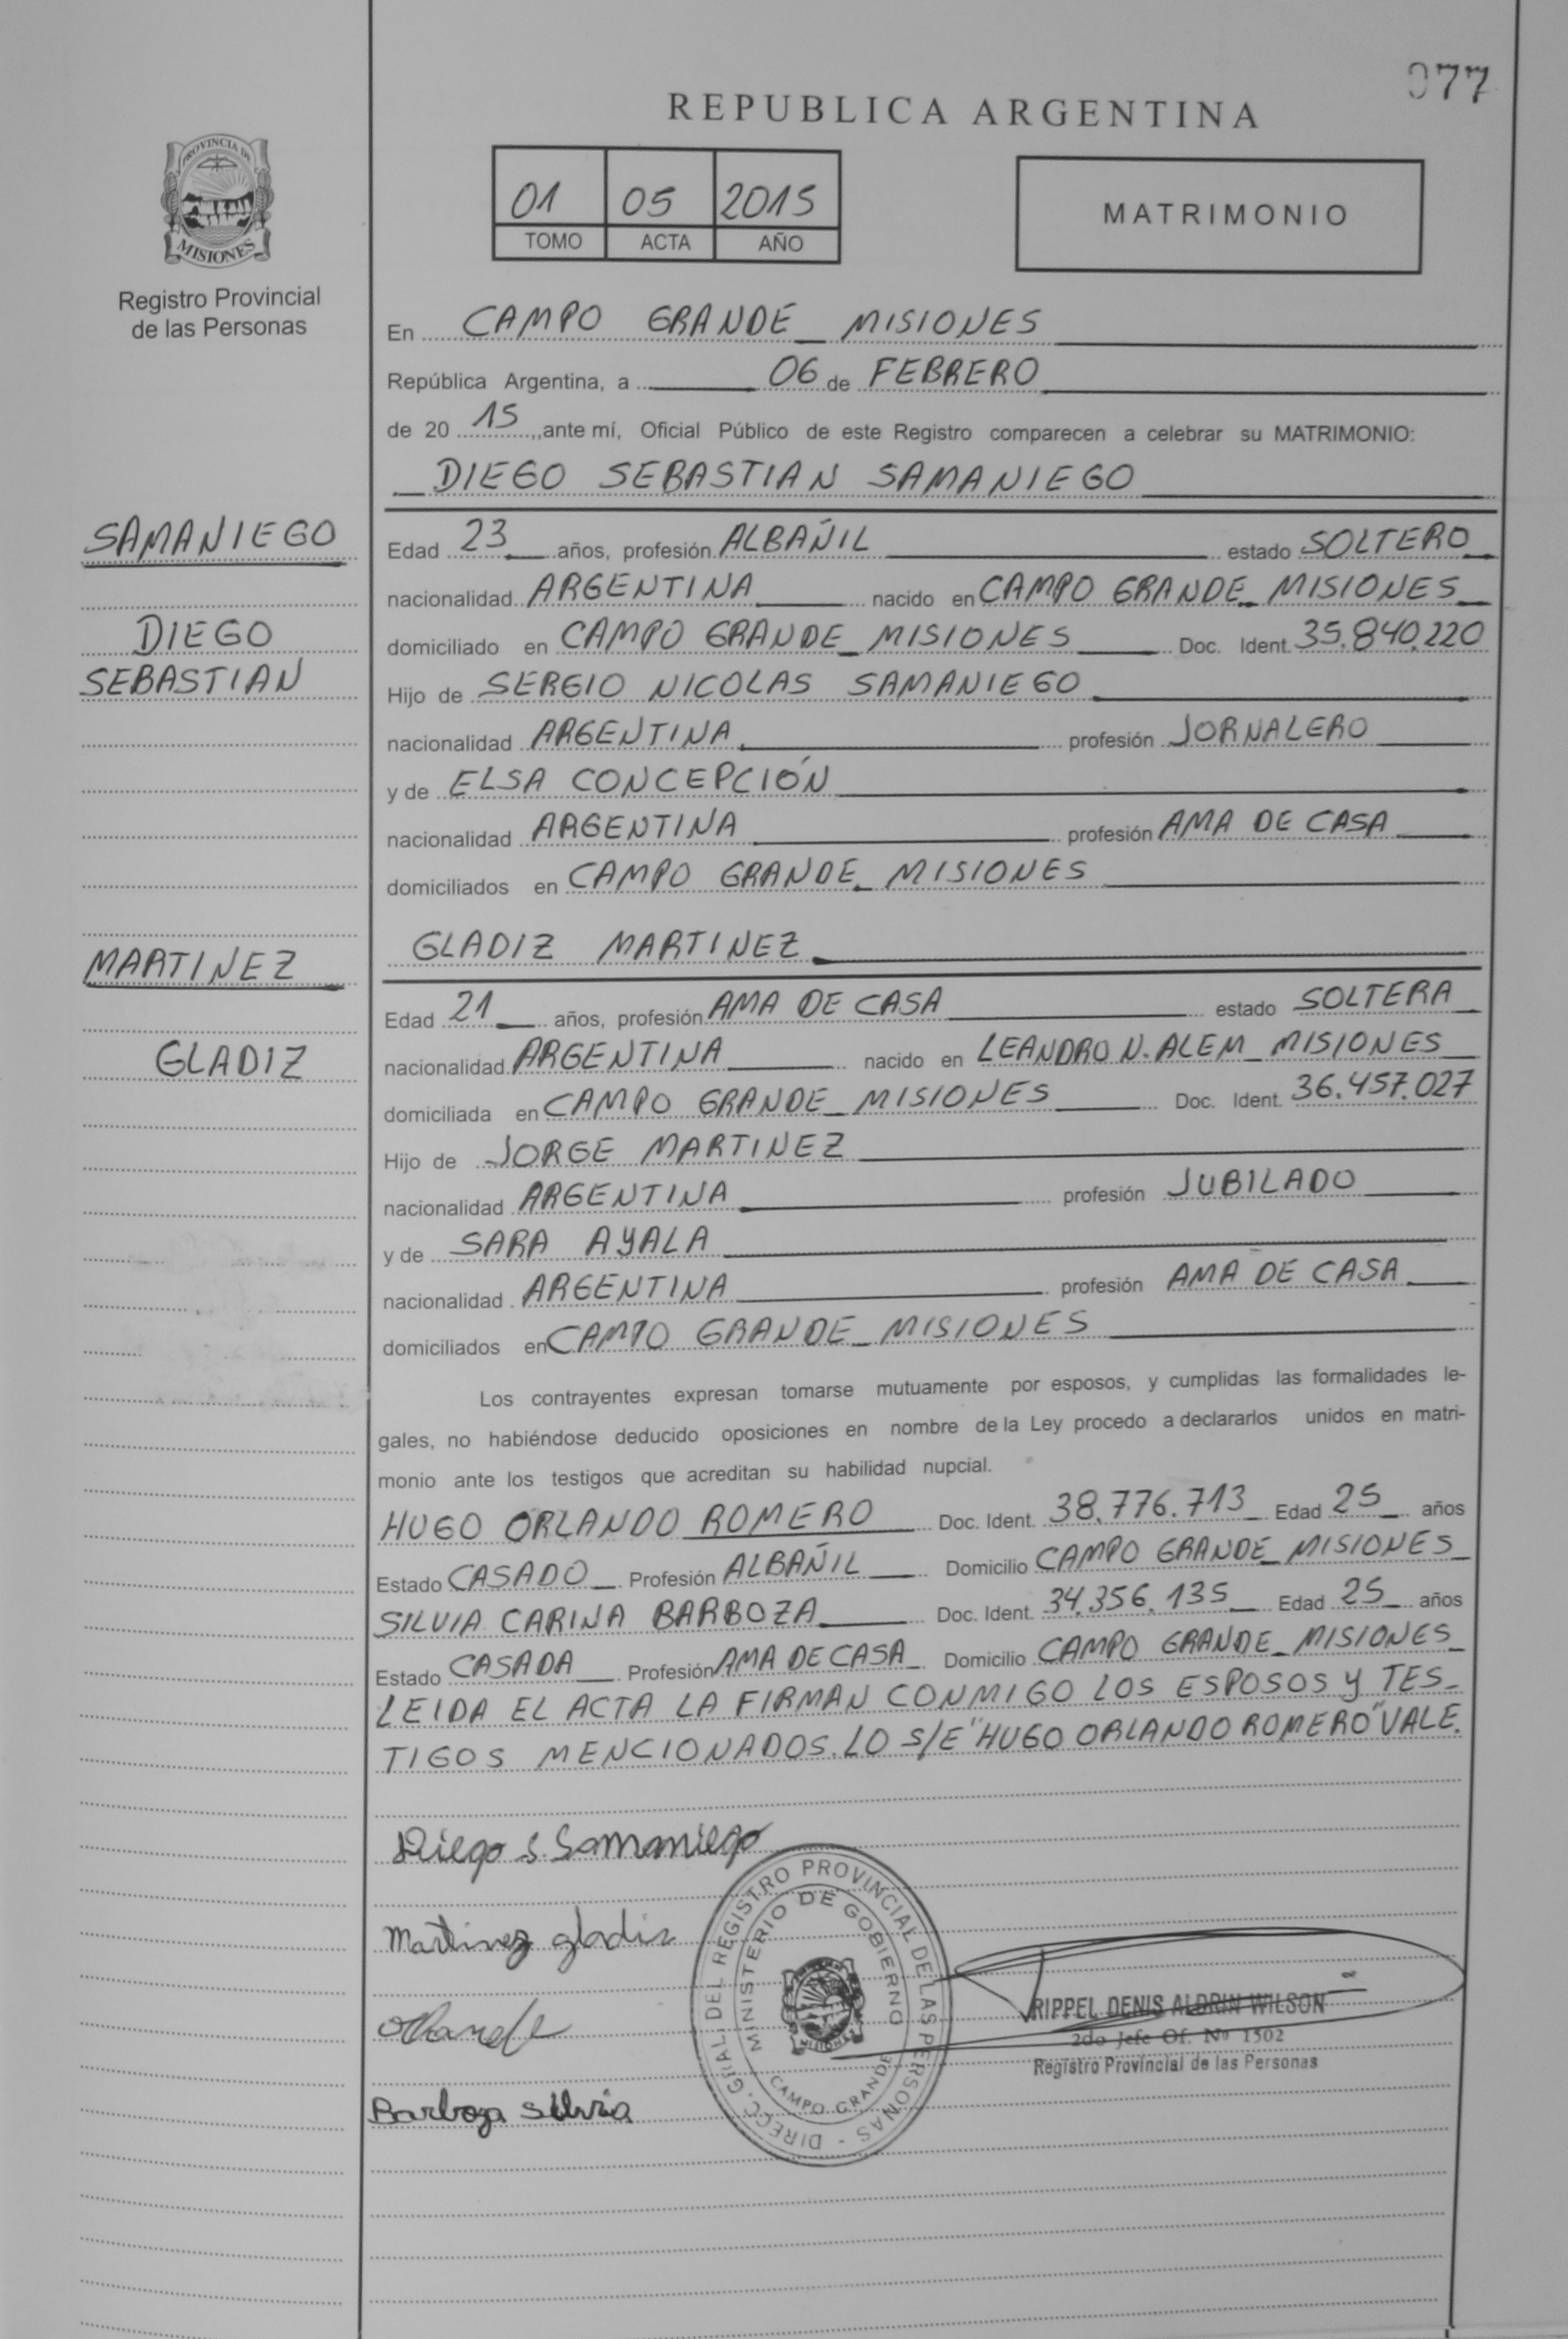 077
REPUBLICA ARGENTINA
PROVINCIA DE
MISIONES
Registro Provincial
de las Personas
01 05 2015
TOMO ACTA AÑO
MATRIMONIO
En CAMPO GRANDE_ MISIONES
República Argentina, a 06 de FEBRERO
de 20 15, ante mí, Oficial Público de este Registro comparecen a celebrar su MATRIMONIO:
DIEGO SEBASTIAN SAMANIEGO
SAMANIEGO
DIEGO
SEBASTIAN
Edad 23 años, profesión ALBAÑIL estado SOLTERO
nacionalidad ARGENTINA nacido en CAMPO GRANDE_ MISIONES
domiciliado en CAMPO GRANDE_ MISIONES Doc. Ident. 35.840.220
Hijo de SERGIO NICOLAS SAMANIEGO
nacionalidad ARGENTINA profesión JORNALERO
y de ELSA CONCEPCIÓN
nacionalidad ARGENTINA profesión AMA DE CASA
domiciliados en CAMPO GRANDE_ MISIONES
GLADIZ MARTINEZ
MARTINEZ
GLADIZ
Edad 21 años, profesión AMA DE CASA estado SOLTERA
nacionalidad ARGENTINA nacido en LEANDRO N. ALEM_ MISIONES
domiciliada en CAMPO GRANDE_ MISIONES Doc. Ident. 36.457.027
Hijo de JORGE MARTINEZ
nacionalidad ARGENTINA profesión JUBILADO
y de SARA AYALA
nacionalidad ARGENTINA profesión AMA DE CASA
domiciliados en CAMPO GRANDE_ MISIONES
Los contrayentes expresan tomarse mutuamente por esposos, y cumplidas las formalidades le-
gales, no habiéndose deducido oposiciones en nombre de la Ley procedo a declararlos unidos en matri-
monio ante los testigos que acreditan su habilidad nupcial.
HUGO ORLANDO ROMERO Doc. Ident. 38.776.713 Edad 25 años
Estado CASADO Profesión ALBAÑIL Domicilio CAMPO GRANDE_ MISIONES
SILVIA CARINA BARBOZA Doc. Ident. 34.356.135 Edad 25 años
Estado CASADA Profesión AMA DE CASA Domicilio CAMPO GRANDE_ MISIONES
LEIDA EL ACTA LA FIRMAN CONMIGO LOS ESPOSOS Y TES-
TIGOS MENCIONADOS. LO S/E "HUGO ORLANDO ROMERO" VALE.
Diego S. Samaniego
Martinez gladiz
Barboza Silvia
DIRECC. GRAL. DEL REGISTRO PROVINCIAL DE LAS PERSONAS -
MINISTERIO DE GOBIERNO
MISIONES
CAMPO GRANDE
RIPPEL DENIS ALDRIN WILSON
2do Jefe Of. Nº 1502
Registro Provincial de las Personas